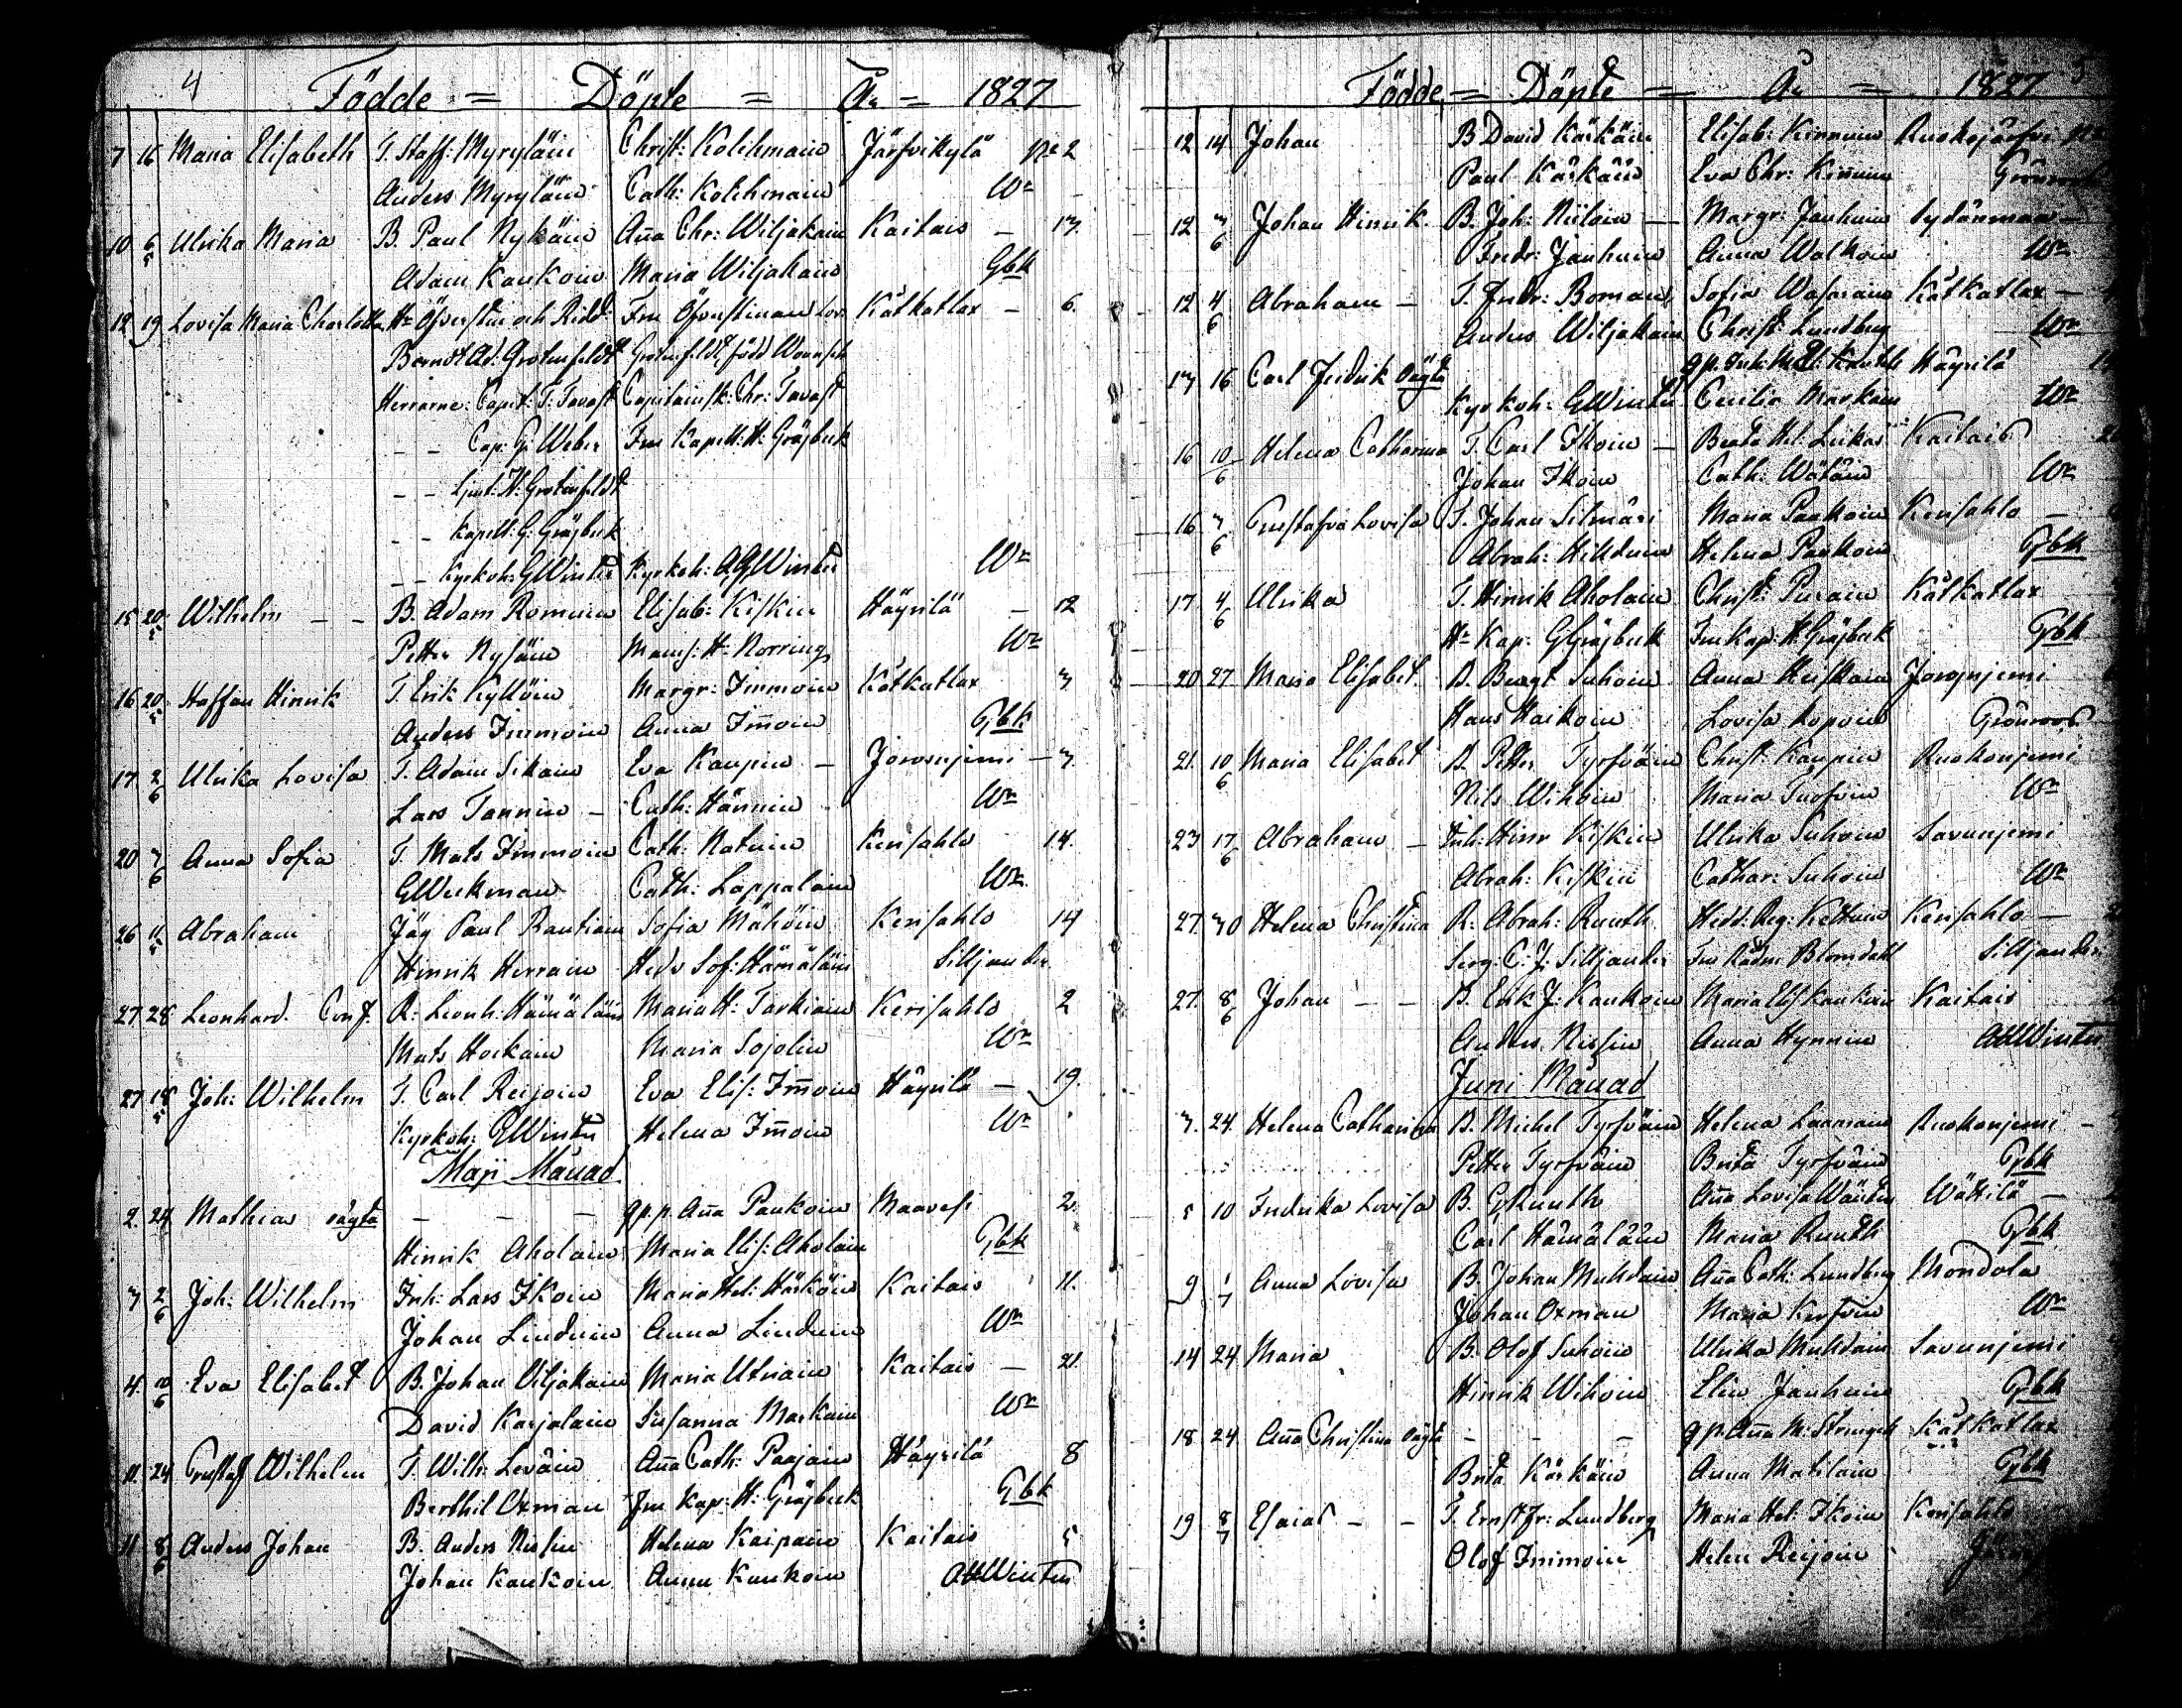 4
Födde = Döpte = År = 1827
7 16 Maria Elisabeth T. Staff: Myryläin Christ: Kolehmain Järfvikylä No 2
Anders Myryläin Cath: Kolehmain Wr
10 6/5 Ulrika Maria B. Paul Nykäin Aña Chr: Wiljakain Kaitais – 13
Adam Kaukoin Maria Wiljakain Gbk
12 19 Lovisa Maria Charlotta Hr Öfverstin och Ridd: Fru Öfverstinnan Lov: Kätkatlax – 6
Berndt Ad: Grotenfeldt Grotenfeldt född Wounsch
Herrarne: Capit: T: Tavast Capitainsk: Chr: Tavast
– – Cap: G: Weber Fru Kapell: H: Gräsbeck
– – H: Grotenfeldt
– – Kapell: G: Gräsbeck
– – Kyrkoh: G Winter Kyrkoh: A G Winter Wr
15 20/5 Wilhelm – – B. Adam Romuin Elisab: Kiskin Häyrilä – 12
Petter Nysäin Mams: H: Norring Wr
16 20/5 Staffan Hinrik T. Erik Kyllöin Margr: Immoin Kätkatlax 3
Anders Immoin Anna Im̃oin Gbk
17 2/6 Ulrika Lovisa T. Adam Sikain Eva Kaupin – Joroisnjemi – 3
Lars Tannin – Cath: Hännin Wr
20 3/6 Anna Sofia T. Mats Immoin Cath: Natuin Kerisahlo 14
G Weckman Cath: Lappalain Wr
26 Abraham Jäg Paul Rautiain Sofia Mähöin Kerisahlo 14
Hinrik Herrain Hedv Sof: Hämäläin Silljander
27 28 Leonhard Conf. R: Leonh: Hämäläin Maria H: Tarkiain Kerisahlo 2
Mats Horkain Maria Sojolin Wr
27 18/5 Joh: Wilhelm T. Carl Reijoin Eva Elis: Im̃oin Häyrilä – 19
Kyrkoh: G Winter Helena Im̃oin Wr
Maji Månad
2 24 Mathias oägta – – – qp.p. Aña Paukoin Maavesi 2
Hinrik Aholain Maria Elis: Aholain Gbk
3 2/6 Joh: Wilhelm Inh: Lars Ikoin Maria Hel: Härköin Kaitais 11
Johan Linduin Anna Linduin Wr
4 10/6 Eva Elisabet B. Johan Viljakain Maria Utriain Kaitais – 21
David Karjalain Susanna Markain Wr
11 24 Gustaf Wilhelm T. Wilh: Leväin Aña Cath: Paajain Häyrilä 8
Berthil Oxman Fru Kap: H: Gräsbeck Gbk
11 8/6 Anders Johan B. Anders Nissin Helena Kaipain Kaitais 5
Johan Kaukoin Anna Kaukoin Winter
5
Födde = Döpte = År = 1827
12 14 Johan B David Käkäin Elisab: Kinnuin Ruokojärfvi
Paul Käkäin Eva Chr: Kinnuin Grönroos
12 3/6 Johan Hinrik B. Joh: Niiloin – Margr: Janhuin Sydänmaa –
Fredr: Janhuin Anna Walkoin Wr
12 4/6 Abraham – T. Fredr: Boman Sofia Wasarain Kätkatlax –
Anders Wiljakain Christ: Lundberg Wr
13 16 Carl Fredrik Oägta Häyrilä
Kyrkoh: G Winter Cecilia Markain Wr
16 10/6 Helena Catharina T. Carl Ikoin – Beata Hel: Leskas Kaitais
Johan Ikoin Cath: Wätäin Wr
16 3/6 Gustafva Lovisa T. Johan Silmäri Maria Paukoin Kerisahlo –
Abrah: Hilduin Helena Paukoin Gbk
17 4/6 Ulrika T. Hinrik Aholain Christ: Purain Kätkatlax
Hr Kap: G Gräsbeck Fru Kap: H Gräsbeck Gbk
20 27 Maria Elisabet B. Bengt Suhoin Anna Heiskain Joroisnjemi
Hans Haikoin Lovisa Kopoin Grönroos
21 10/6 Maria Elisabet B. Petter Tyrfväin Christ: Kaupin Ruokonjemi
Nils Wihoin Maria Wr
23 17/6 Abraham – Inh: Hinr Kiskin Ulrika Suhoin Savunjemi
Abrah: Kiskin Cathar: Suhoin Wr
27 30 Helena Christina R: Abrah: Ruuth Hedd: Reg: Kettuin Kerisahlo –
Serg: C: J: Silljander Fru Blomdahl Silljander
27 8/6 Johan – – B. Erik J: Kaukoin Maria Elis Kaukoin Kaitais
Anders Nissin Anna Hynnin Winter
Juni Månad
3 24 Helena Catharina B. Michel Tyrfväin Helena Laamain Ruokonjemi –
Petter Tyrfväin Brita Tyrfväin Gbk
5 10 Fredrika Lovisa B. G Ruuth Aña Lovisa Wättilä –
Carl Hämäläin Maria Ruuth Gbk
9 1/7 Anna Lovisa B. Johan Muhdain Aña Cath: Lundberg Mondola
Johan Oxman Maria Wr
14 24 Maria B. Olof Suhoin Ulrika Muhdain Savunjemi
Hinrik Wihoin Elin Janhuin Gbk
18 24 Aña Christina Oägta – – – qp. Aña M: Kätkatlax
Brita Käkäin Anna Matilain Gbk
19 8/7 Esaias – – T. Ernst Fr: Lundberg Maria Hel: Ikoin Kerisahlo
Olof Immoin Helen Reijoin